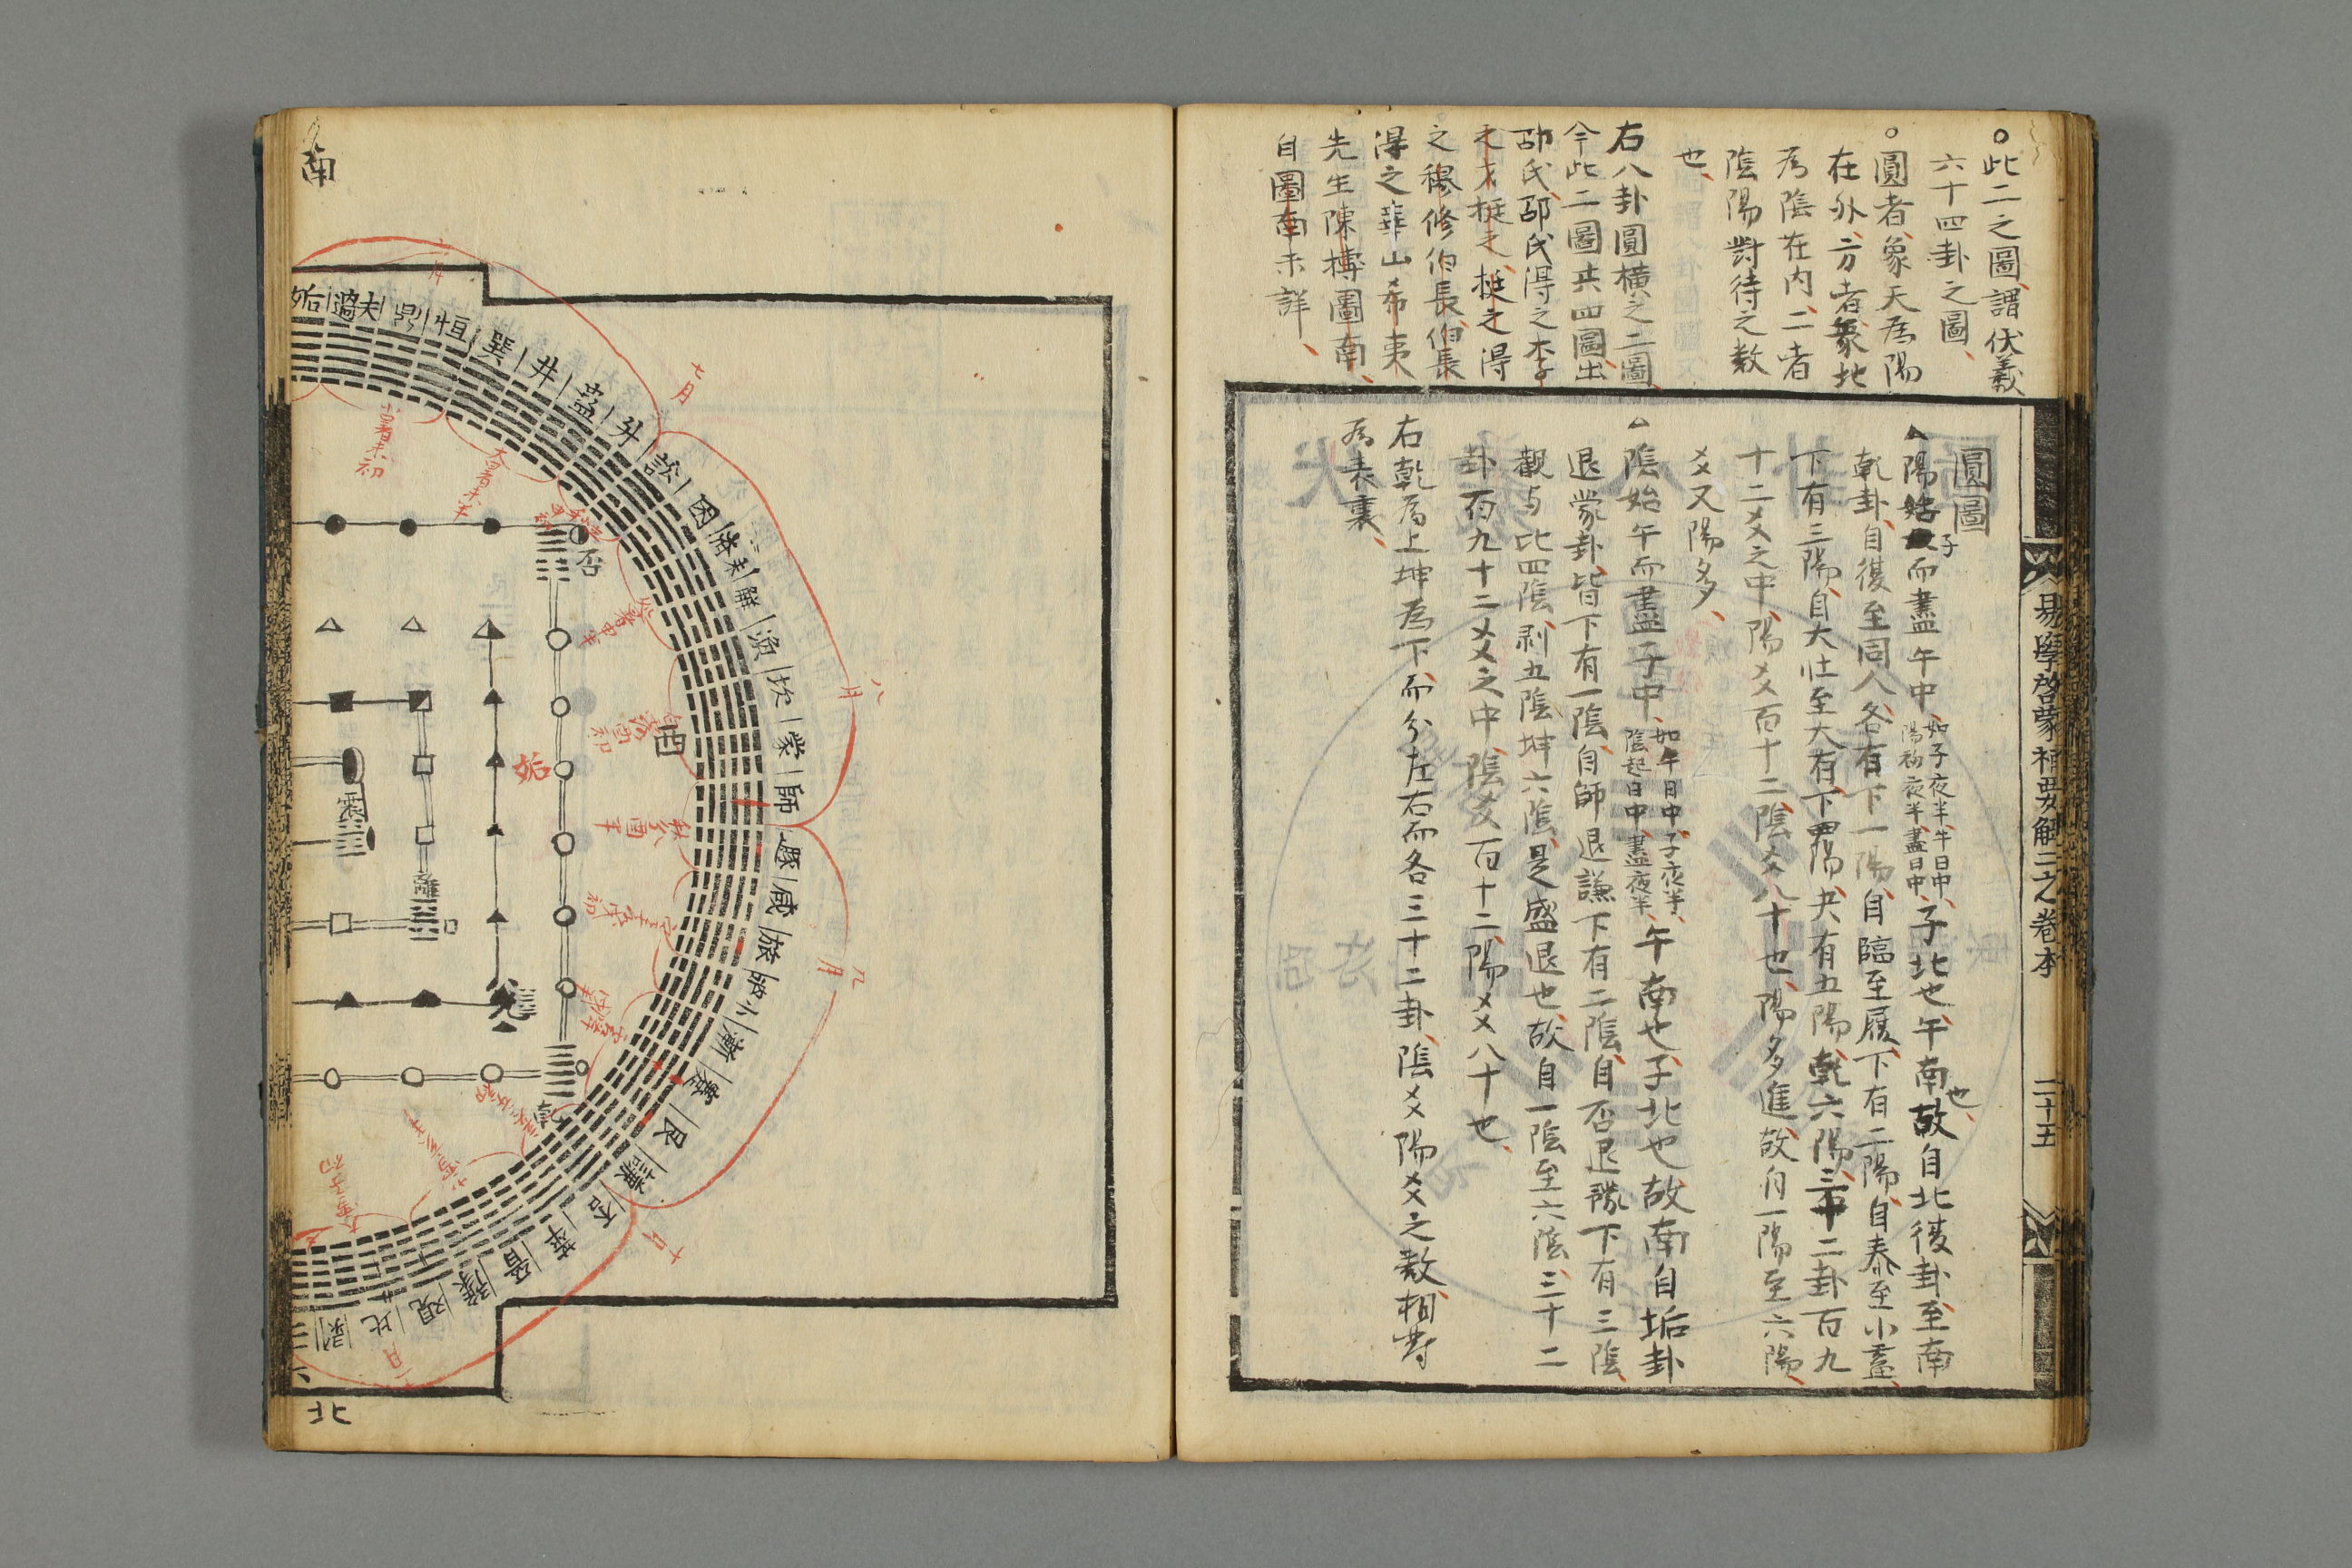 ○此二之圖、謂伏羲
六十四卦之圖、
○圓者、象天為陽
在外、方者象地
為陰在内、二者
陰陽對待之数
也、
右八卦圓横之二圖
今此二圖共四圖出
邵氏、邵氏得之李
之才挺之、挺之得
之穆修伯長、伯長
得之華山希夷
先生陳摶圖南、
自圖南未詳、
圓圖
陽始子而盡午中、如子夜半、午日中、陽初夜半、盡日中、子北也、午南也、故自北復卦、至南
乾卦、自復至同人、各有下一陽、自臨至履、下有二陽、自泰至小畜、
下有三陽、自大壮至大有、下四陽、夬有五陽、乾六陽、三十二卦百九
十二爻之中、陽爻百十二、陰爻八十也、陽多進、故自一陽至六陽、
爻又陽多、
陰始午而盡子中、如午日中、子夜半、陰起日中、盡夜半、午南也、子北也、故南自垢卦
退蒙卦、皆下有一陰、自師退謙下有二陰、自否退豫下有三陰
觀与比四陰、剥五陰、坤六陰、是盛退也、故自一陰至六陰、三十二
卦百九十二爻之中、陰爻百十二、陽爻八十也、
右乾為上坤為下、而分左右而各三十二卦、陰爻陽爻之数、相對
為表裏、
易學啓蒙補要解二之卷本
二十五
南
姤
過
鼎
恒
巽
井
蠱
升
訟
困
解
渙
坎
蒙
師
咸
旅
小
漸
艮
謙
否
萃
晋
豫
觀
比
剥
北
七月
八月
九月
十月
小暑未初
大暑未半
秋分酉半
酉
否
姤